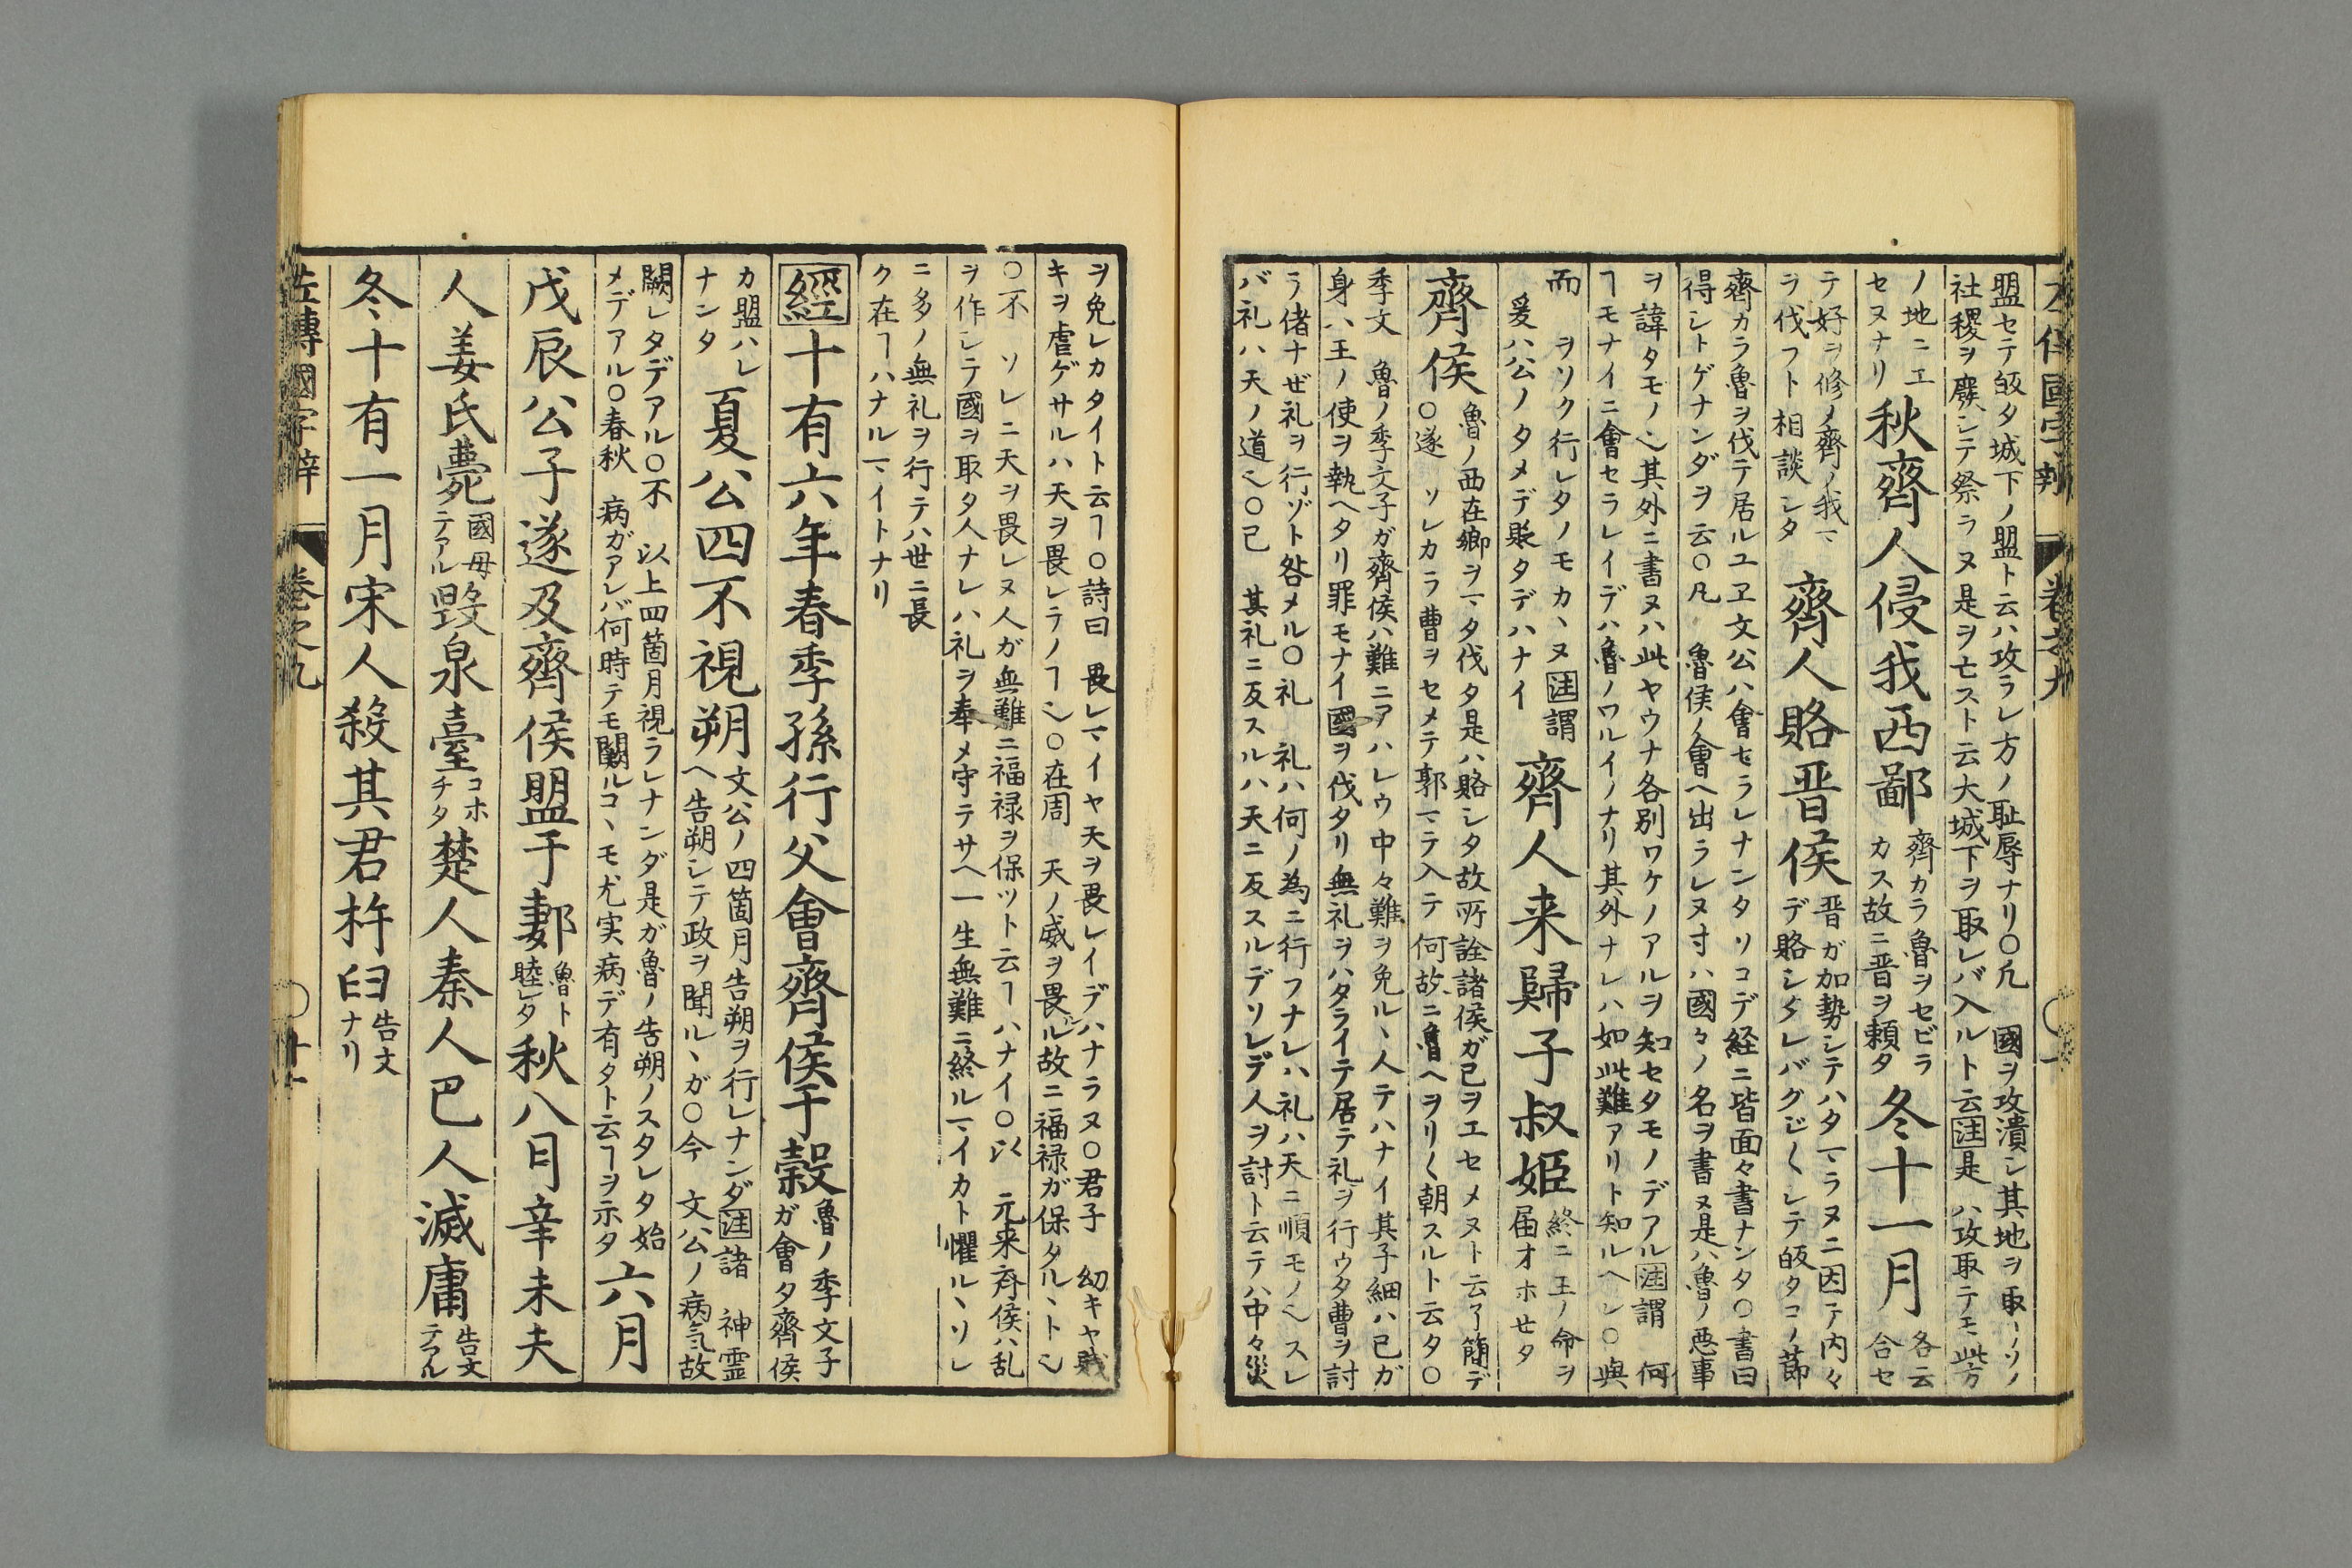 盟セテ皈タ城下ノ盟ト云ハ攻ラレ方ノ耻辱ナリ〇凡　國ヲ攻潰シ其地ヲ取ーソノ
社稷ヲ廢シテ祭ラヌ是ヲ亡スト云大城下ヲ取レバ入ルト云注是　ハ攻取テモ此方
ノ地ニエ
セヌナリ
秋齊人侵我西鄙
齊カラ魯ヲセビラ
カス故ニ晋ヲ頼タ
冬十一月
各云
合セ
テ好ヲ修メ齊ノ我ヽ
ラ伐フト相談シタ
齊人賂晋侯
晋ガ加勢シテハタマラヌニ因テ内々
デ賂シタレバグジ〱レテ皈タコノ莭
齊カラ魯ヲ伐テ居ルユヱ文公ハ會セラレナンタソコデ経ニ皆面々書ナンタ〇書曰
得シトゲナンダヲ云〇凡　魯侯ノ會ヘ出ラレヌ寸ハ國々ノ名ヲ書ヌ是ハ魯ノ悪事
ヲ諱タモノ也其外ニ書ヌハ此ヤウナ各別ワケノアルヲ知セタモノデアル注謂　何
ヿモナイニ會セラレイデハ魯ノワルイノナリ其外ナレハ如此難アリト知ルヘシ〇與
而　ヲソク行レタノモカヽヌ注謂
爰ハ公ノタメデ賬タデハナイ
齊人来歸子叔姫
終ニ王ノ命ヲ
届オホせタ
齊侯
魯ノ西在郷ヲマタ伐タ是ハ賂シタ故所詮諸侯ガ己ヲエセメヌト云了簡デ
〇遂　ソレカラ曹ヲセメテ郭マテ入テ何故ニ魯ヘヲリ〱朝スルト云タ〇
季文　魯ノ季文子ガ齊侯ハ難ニアハレウ中々難ヲ免ルヽ人テハナイ其子細ハ己ガ
身ハ王ノ使ヲ執ヘタリ罪モナイ國ヲ伐タリ無礼ヲハタライテ居テ礼ヲ行ウタ曹ヲ討
ラ偖ナぜ礼ヲ行ゾト咎メル〇礼　礼ハ何ノ為ニ行フナレハ礼ハ天ニ順モノ也スレ
バ礼ハ天ノ道也〇己　其礼ニ反スルハ天ニ反スルデソレデ人ヲ討ト云テハ中々災
ヲ免レカタイト云ヿ〇詩曰　畏レマイヤ天ヲ畏レイデハナラヌ〇君子　幼キヤ賎
キヲ虐ゲサルハ天ヲ畏レテノヿ也〇在周　天ノ威ヲ畏ル故ニ福禄ガ保タルヽト也
〇不　ソレニ天ヲ畏レヌ人ガ無難ニ福禄ヲ保ツト云ヿハナイ〇以　元来斉侯ハ乱
ヲ作シテ國ヲ取タ人ナレハ礼ヲ奉メ守テサヘ一生無難ニ終ルマイカト懼ルヽソレ
ニ多ノ無礼ヲ行テハ世ニ長
ク在ヿハナルマイトナリ
經十有六年春季孫行父會齊侯于穀
魯ノ季文子
ガ會タ齊侯
カ盟ハレ
ナンタ
夏公四不視朔
文公ノ四箇月告朔ヲ行レナンダ注諸　神霊
ヘ告朔シテ政ヲ聞ルヽガ〇今　文公ノ病気故
闕レタデアル〇不　以上四箇月視ラレナンダ是ガ魯ノ告朔ノスタレタ始
メデアル〇春秋　病ガアレバ何時テモ闕ルコヽモ尤実病デ有タト云ヿヲ示タ
六月
戊辰公子遂及齊侯盟于郪
魯ト
睦レタ
秋八月辛未夫
人姜氏薨
國母
テアル
毀泉臺
コホ
チタ
楚人秦人巴人滅庸
告文
テアル
冬十有一月宋人弑其君杵臼
告文
ナリ
左傳國字辯　巻之九